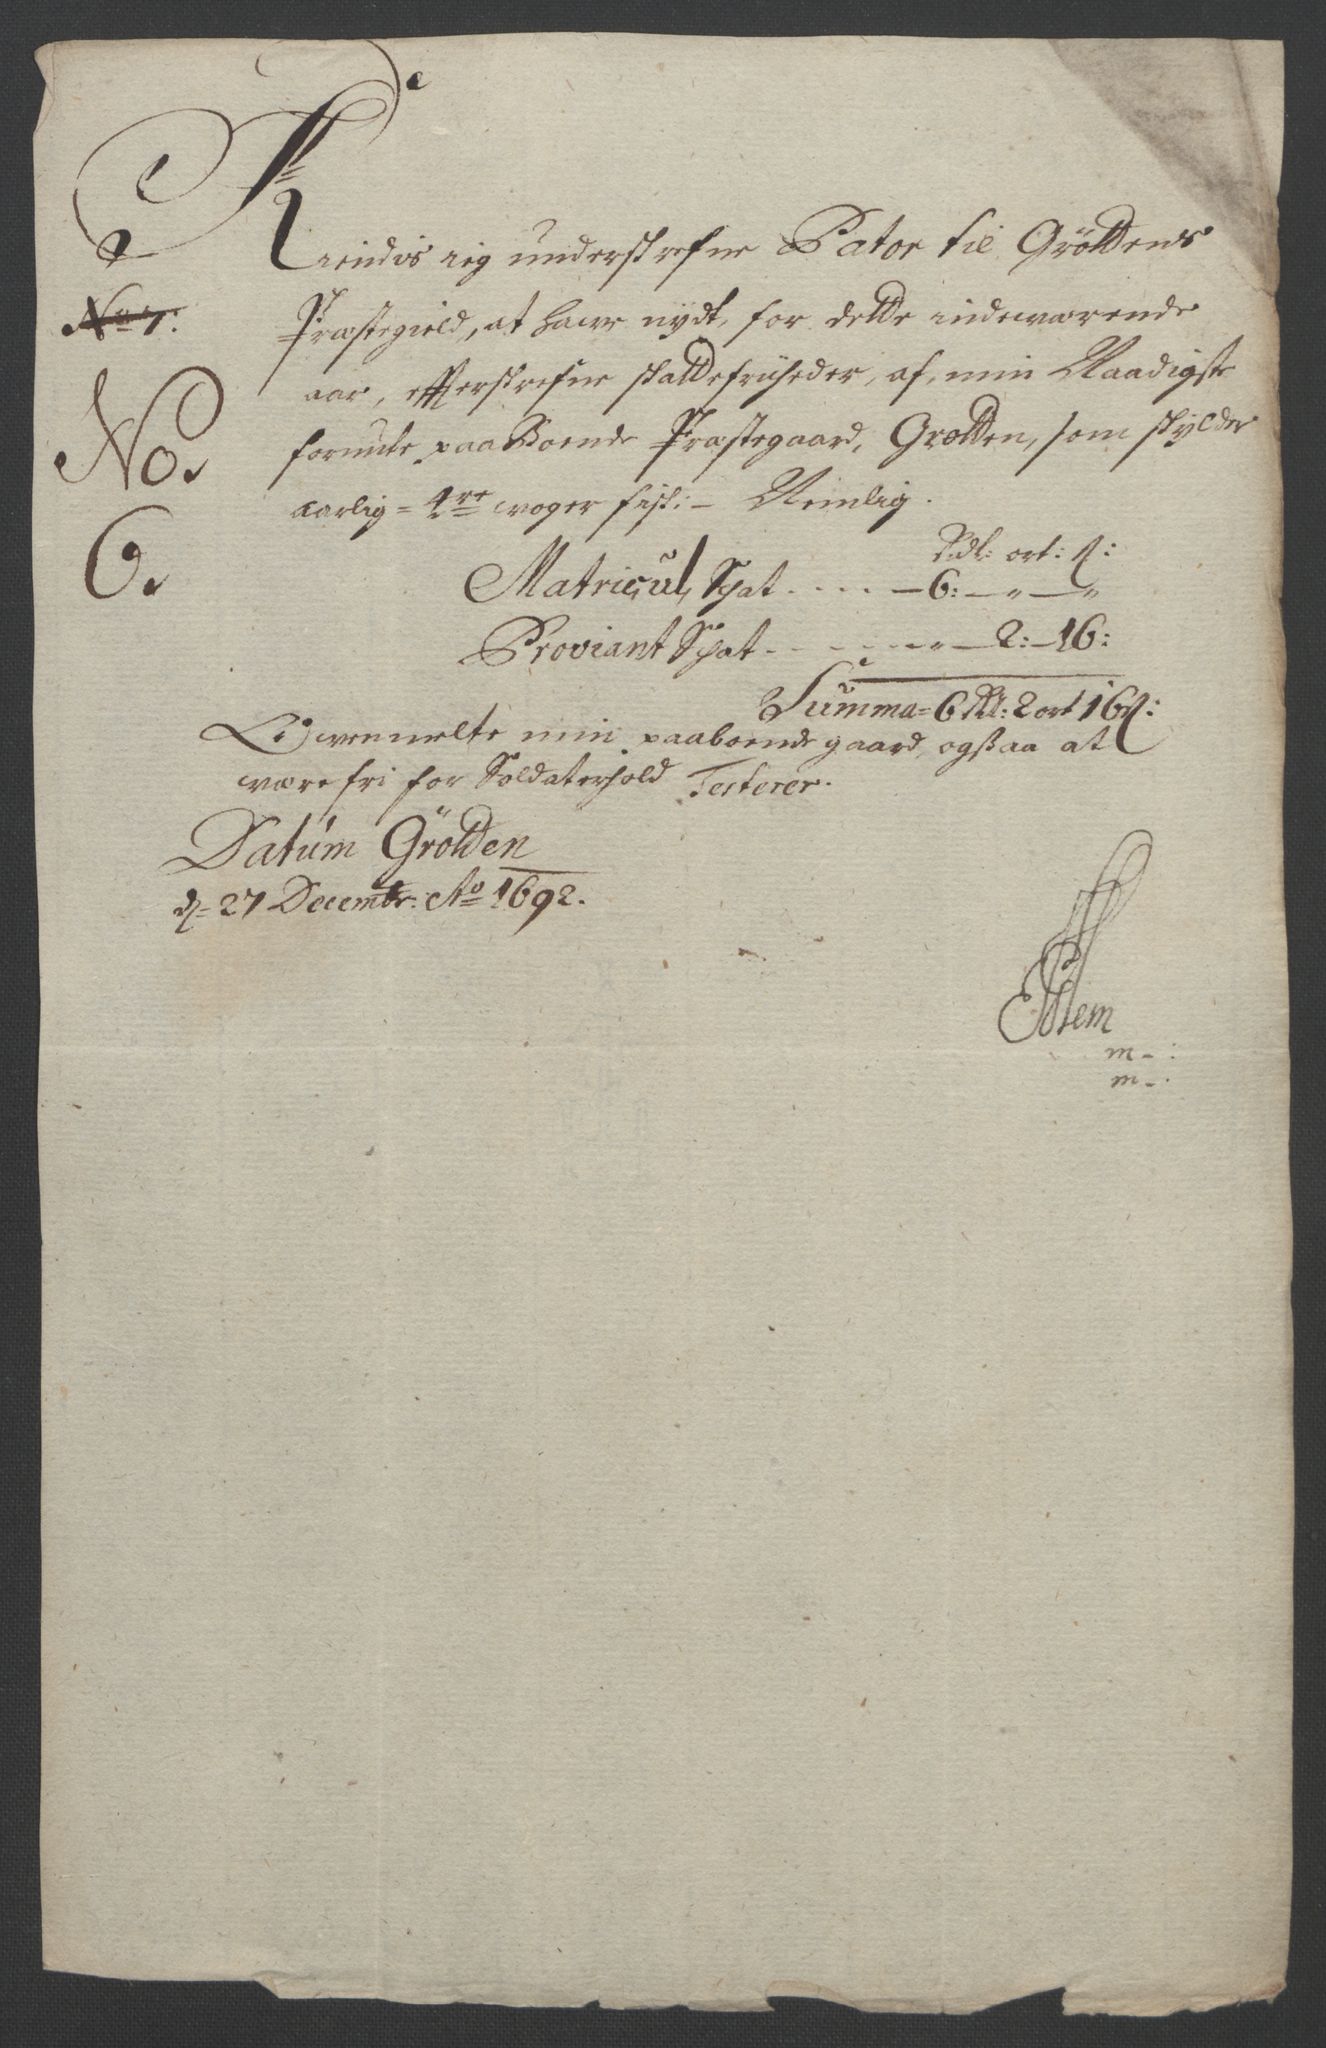 Kiendis ieg underskrefne Pator til Gröttens
No 7:
Præstegield, at hawe nydt, for dette indewærende
aar, effterskrefne skattefriheder, af, min Naadigste
No.
forunte paaBoende Præstegaard, Grotten, som skylder
aarlig = 4re woger fisk: – Nemlig.
6.
Rdl: ort: ß:
Matricul, Schat - - - - 6: — " — "
Proviant Schat - - - - " — 2: — 16:
Summa = 6 Rdl: 2 ort 16 ß:
Owenmelte min paaboende gaard, ogsaa at
være fri for Soldaterhold Testerer.
Datum Grötten
d= 27 Decembr: Ao 1692.
m - :
m - .